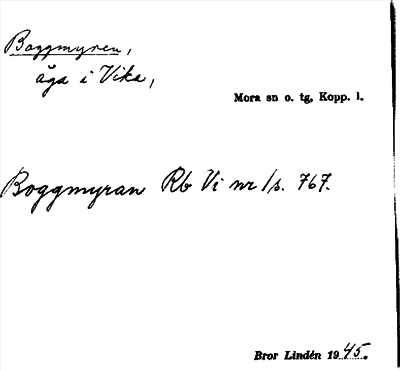 Boggmyren,
äga i Vika,
Mora sn o. tg, Kopp. l.
Boggmyran Rb Vi nr 1 s. 767.
Bror Lindén 1945.